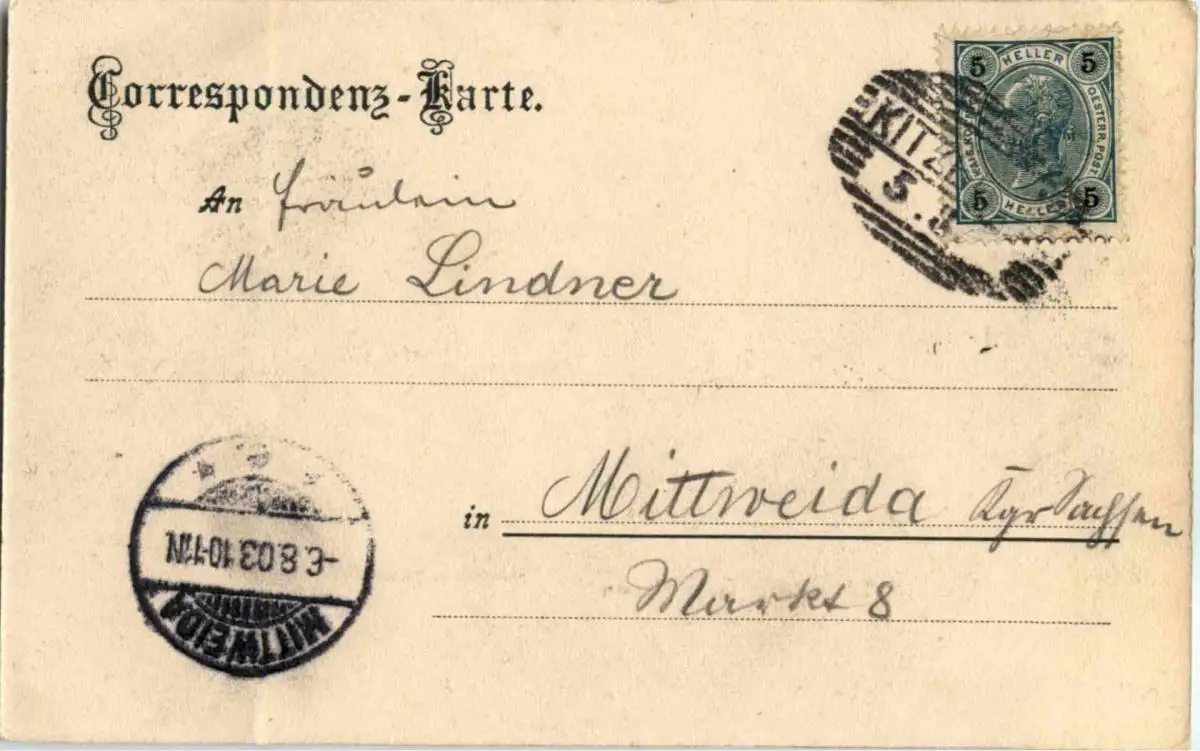 Correspondenz-Karte.
5 HELLER 5
KAIS. KÖ
OESTERR. POST
5 HELLER 5
KITZ
5.8
An Fräulein
Marie Lindner
in Mittweida Kgr Sachsen
Markt 8
MITTWEIDA
-6.8.03.10-11N